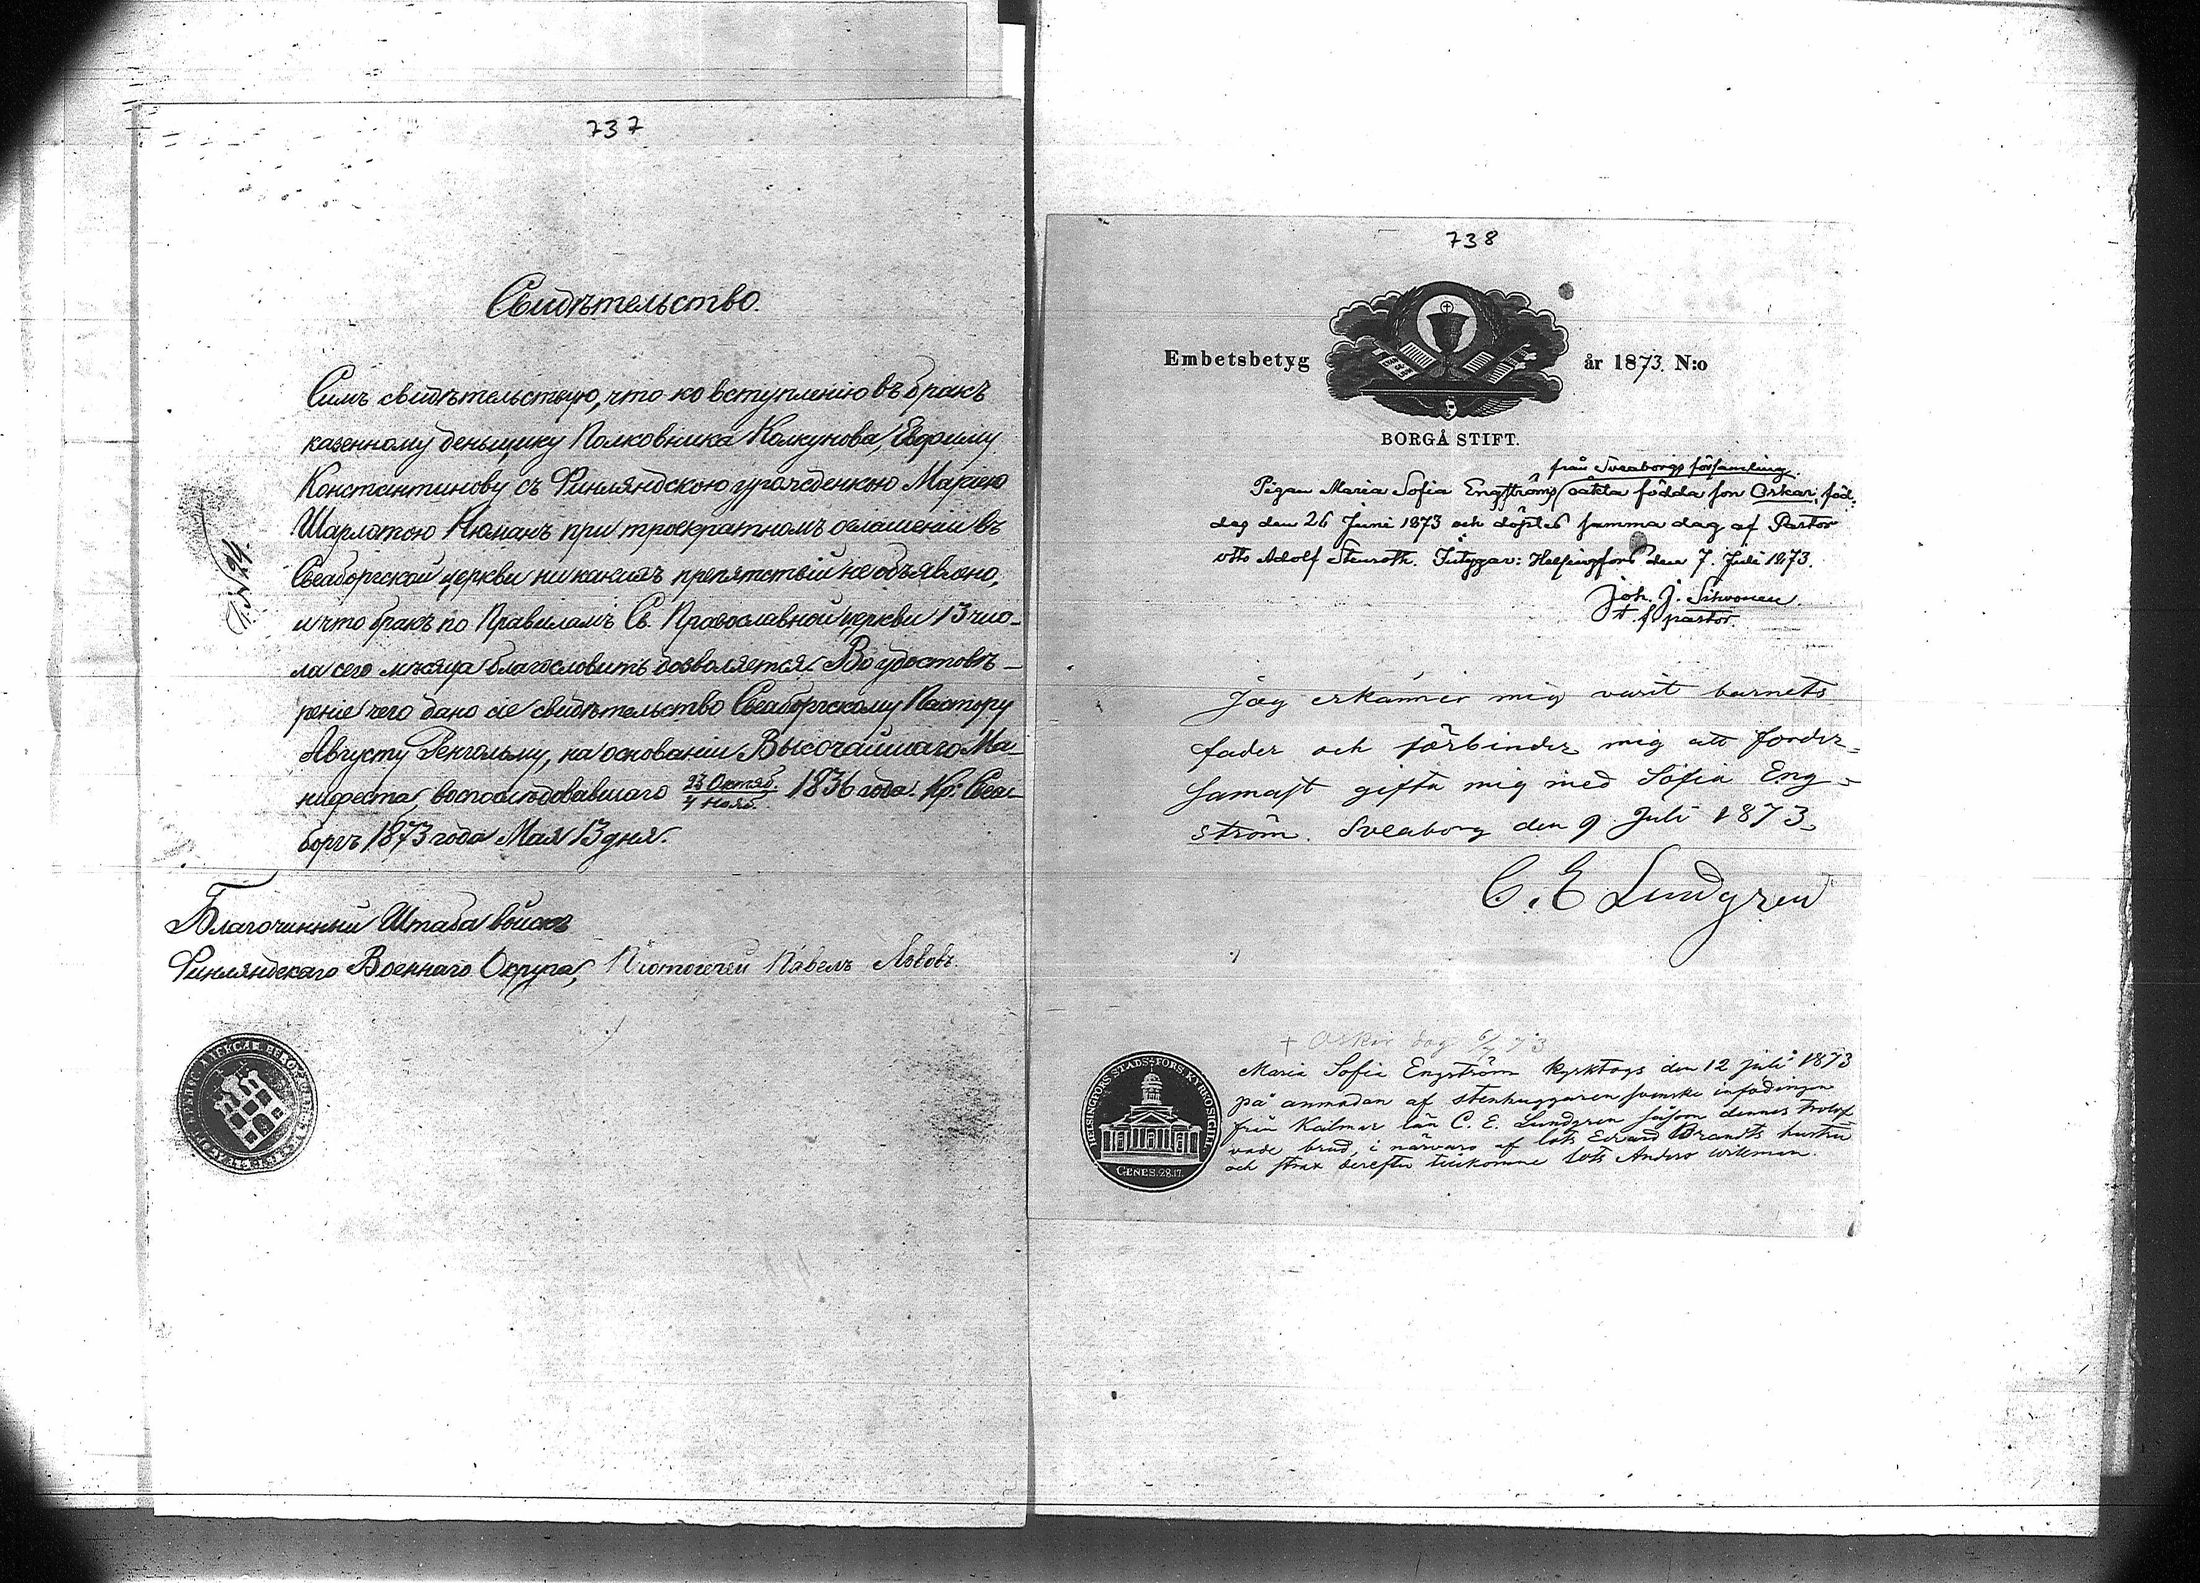 737
Свидѣтельство.
Симъ свидѣтельствую, что ко вступленію въ бракъ
казенному деньщику Полковника Колкунова, Евфиму
Константинову съ Финляндскою уроженкою Маріею
Шарлотою Нюманъ при троекратномъ оглашеніи въ
Свеаборгской церкви никакихъ препятствій не объявлено,
и что бракъ по Правиламъ Св. Православной церкви 13 чис-
ла сего мѣсяца благословить дозволяется. Во удостовѣ-
реніе чего дано сіе свидѣтельство Свеаборгскому Пастору
Августу Ренгольму, на основаніи Высочайшаго Ма-
нифеста, воспослѣдовавшаго 23 Октяб. / 4 Нояб. 1836 года. Кр: Свеа-
боргъ 1873 года Мая 13 дня.
№ 94.
Благочинный Штаба войскъ
Финляндскаго Военнаго Округа, Протоіерей Павелъ Львовъ.
738
Embetsbetyg år 1873. N:o
BORGÅ STIFT.
från Sveaborgs församling
Pigan Maria Sofia Engström oäkta födda son Oskar, föd-
des den 26 Juni 1873 och döptes samma dag af Pastor
Otto Adolf Stenroth. Intygar: Helsingfors den 7. Juli 1873.
Joh. J. Sihvonen.
pastor.
Jag erkänner mig varit barnets
fader och förbinder mig att forder-
samast gifta mig med Sofia Eng-
ström. Sveaborg den 9 Juli 1873
C. E Lundgren
† Oskar dog 6/7 73
Maria Sofia Engström kyrktogs den 12 juli 1873
på anmodan af stenhuggaren svenske infödingen
från Kalmar län C. E. Lundgren såsom dennes trolof-
vade brud, i närvaro af lots Edvard Brandts hustru
och strax derefter tillkomne lots Anders Wikman.
HELSINGFORS STADS-FÖRS. KYRKOSIGILL
GENES. 28.17.